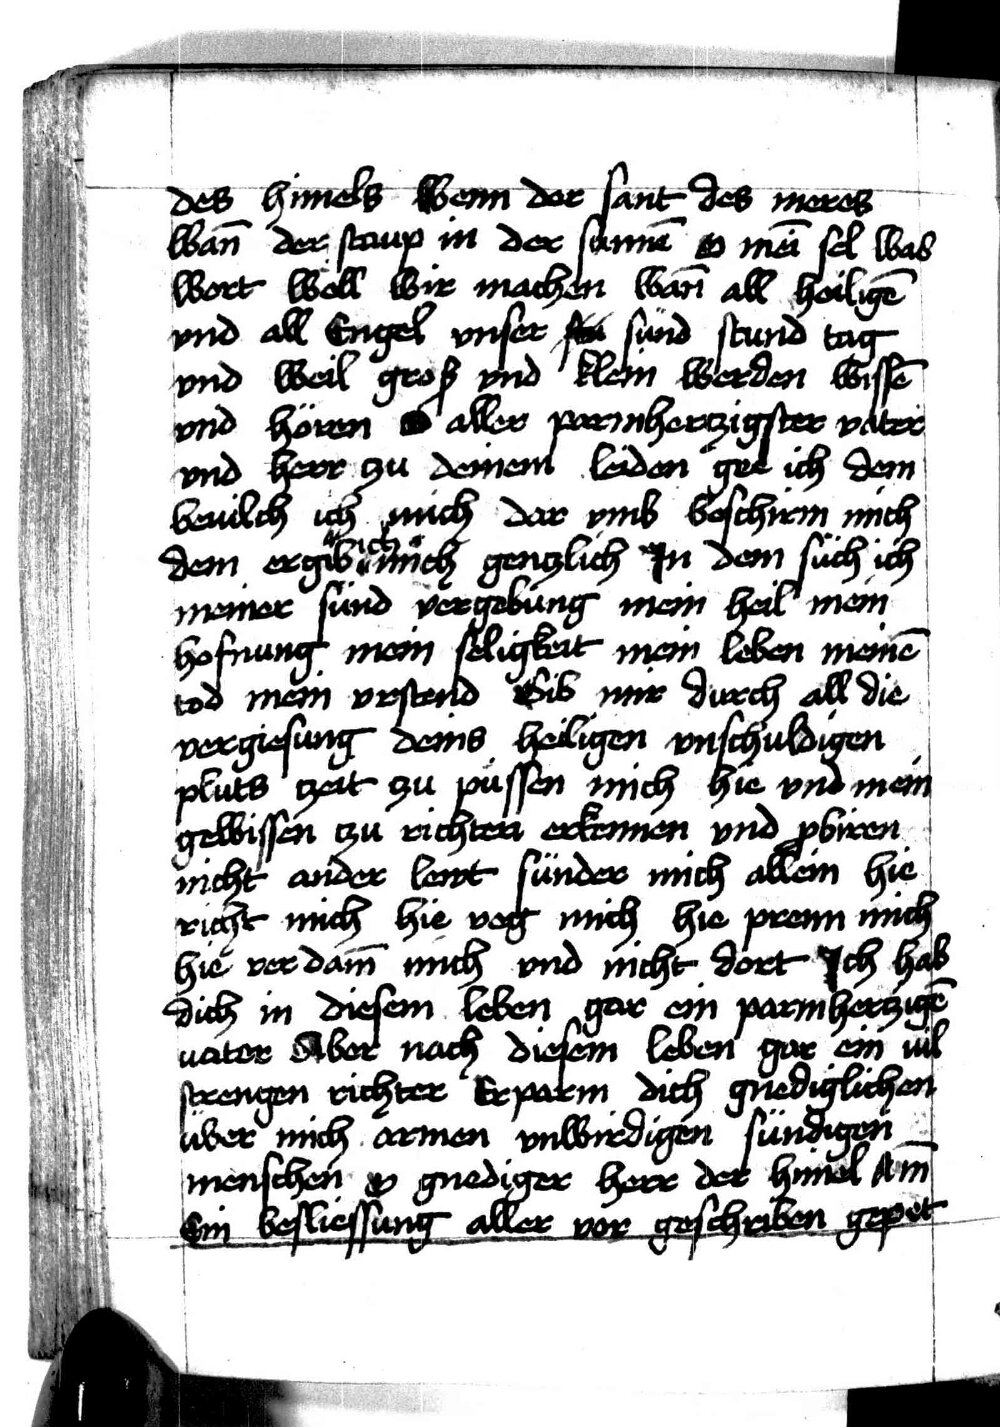 des himels Wenn der sant des meres
Wan̄ der staup in der sunnē o mei̅ sel was
Wort Woll Wir machen Wan̄ all heiligē
vnd all Engel vnser sünd stund tag
vnd Weil groß vnd klein Werden Wissē
vnd hören O aller parmhertzigster vater
vnd herr tzu deinem leiden gee ich dem
beuilch ich mich dar vmb beschirm mich
dem ergib ich mich gentzlich In dem süch ich
meiner sünd vergebung mein heil mein
hofnung mein seligkeit mein leben meinē
tod mein vrstend Gib mir durch all die
vergiesung deins heiligen vnschuldigen
pluts tzeit tzu püssen mich hie vnd mein
geWissen tzu richten erkennen vnd ꝓbiren
nicht ander lewt sünder mich allein hie
richt mich hie veg mich hie prenn mich
hie verdam̄ mich vnd nicht dort Ich hab
dich in diesem leben gar ein parmhertzigē
uater Aber nach diesem leben gar ein uil
strengen richter Erparm dich gnediglichen
über mich armen vnWirdigen sündigen
menschen o gnediger herr der himel Am̄
Ein besliessung aller vor geschriben gepet